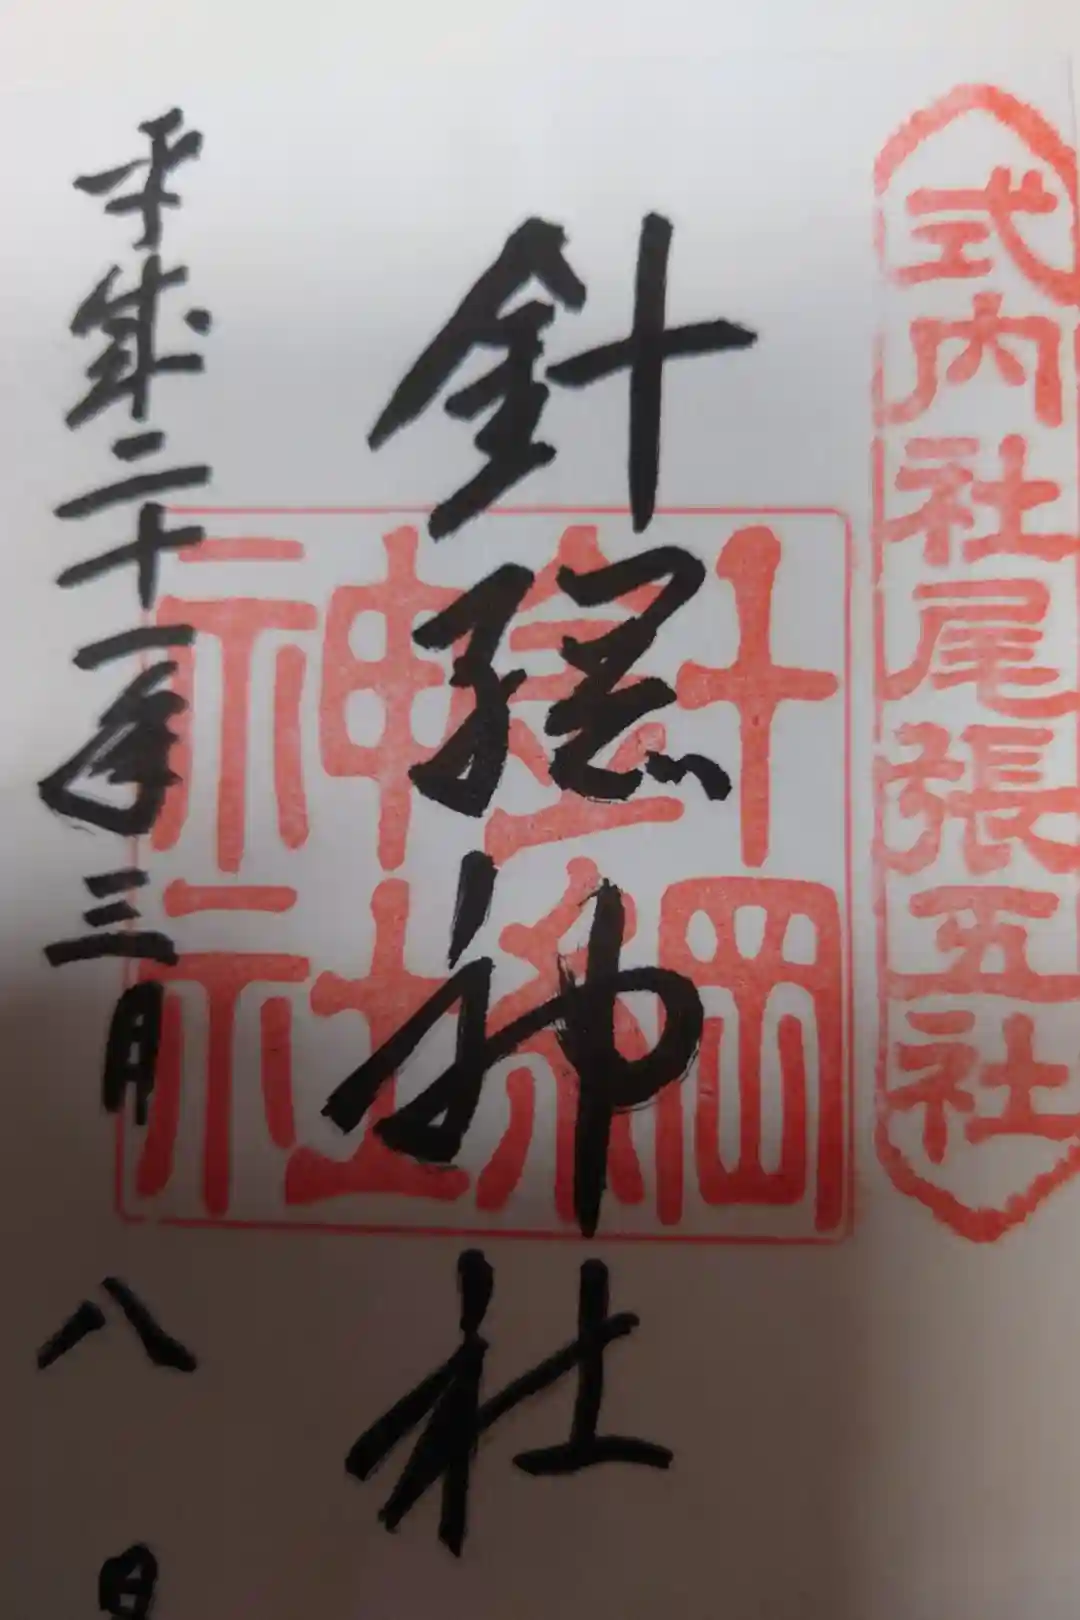 式内社尾張五社
針綱神社
針綱
神社
平成二十一年三月八日